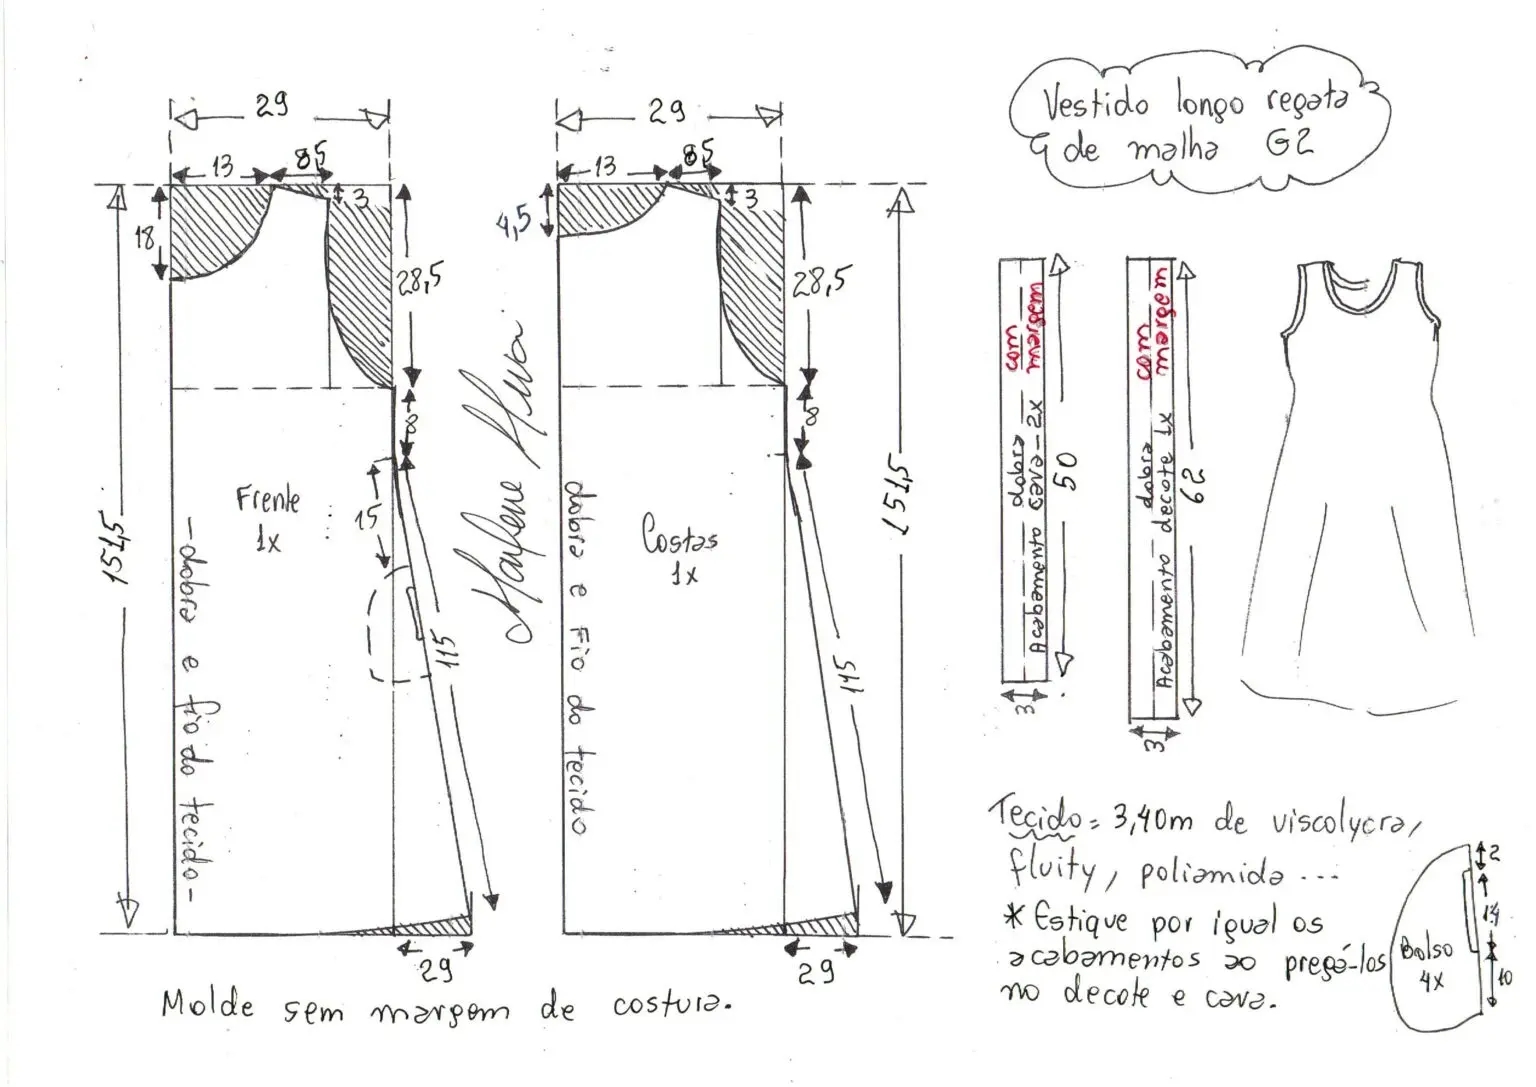 Vestido longo regata
de malha G2
29
13
8,5
3
18
28,5
8
151,5
Frente
1x
15
115
-dobra e fio do tecido-
29
29
13
8,5
3
4,5
28,5
8
151,5
Costas
1x
dobra e fio do tecido
115
29
Marlene Mukai
com margem
dobra
Acabamento cava-2x
50
3
com margem
dobra
Acabamento decote 1x
62
3
Tecido = 3,40m de viscolycra,
fluity, poliamida ...
* Estique por igual os
acabamentos ao pregá-los
no decote e cava.
2
14
10
Bolso
4x
Molde sem margem de costura.